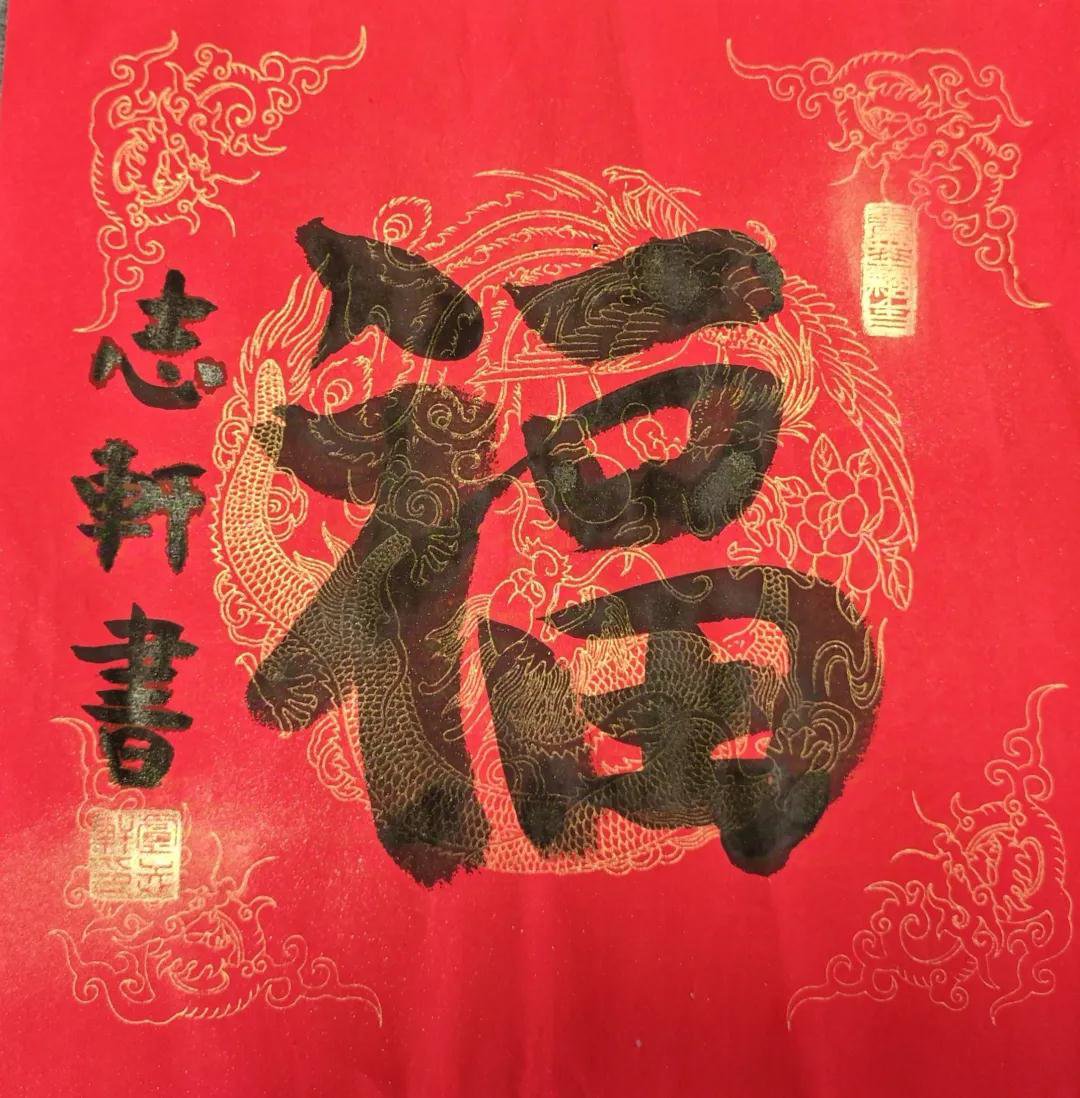 福
志軒書